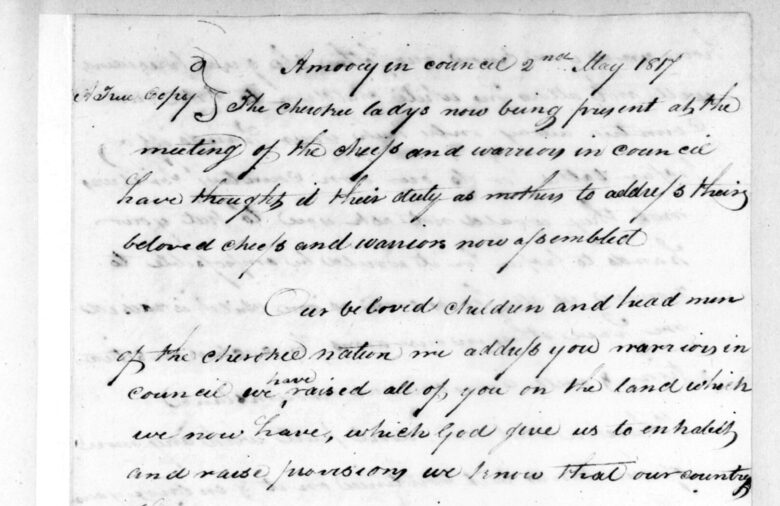 Amoovy in council 2nd May 1817
A True Copy } The cherokee ladys now being present at the
meeting of the cheifs and warriors in council
have thought it their duty as mothers to address their
beloved cheifs and warriors now assembled
Our beloved children and head men
of the cherokee nation we address you warriors in
council we have raised all of you on the land which
we now have, which God give us to inhabit
and raise provisions we know that our country